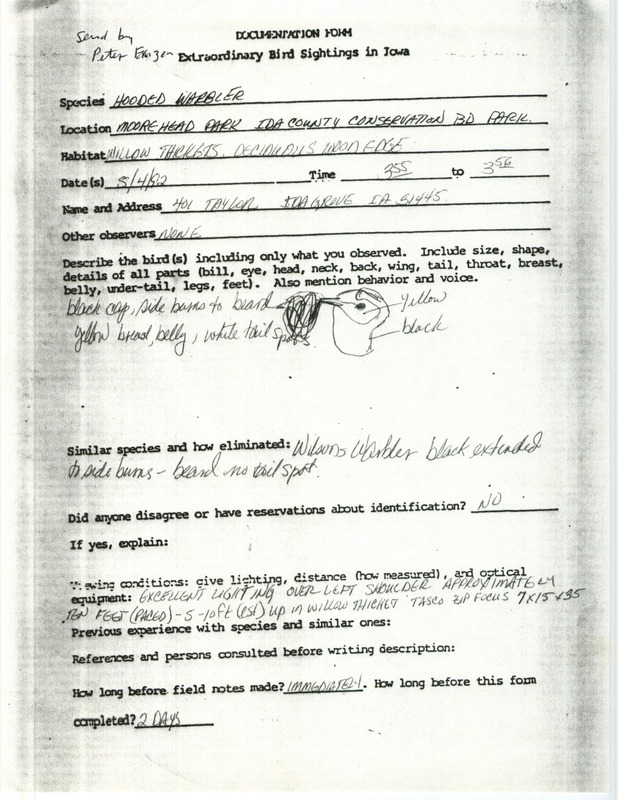 DOCUMENTATION FORM
Send by
Peter
Extraordinary Bird Sightings in Iowa
Species HOODED WARBLER
Location MOOREHEAD PARK IDA COUNTY CONSERVATION BD PARK
Habitat WILLOW THICKETS, DECIDUOUS WOOD EDGE
Date(s) 5/4/82 Time 3:55 to 3:56
Name and Address 401 TAYLOR IDA GROVE IA 51445
Other observers NONE
Describe the bird(s) including only what you observed. Include size, shape,
details of all parts (bill, eye, head, neck, back, wing, tail, throat, breast,
belly, under-tail, legs, feet). Also mention behavior and voice.
black cap, side burns to beard
yellow
Yellow breast, belly, white tail spots.
black
Similar species and how eliminated: Wilsons Warbler black extended
to side burns - beard no tail spot.
Did anyone disagree or have reservations about identification? NO
If yes, explain:
Viewing conditions: give lighting, distance (how measured), and optical
equipment: EXCELLENT LIGHTING OVER LEFT SHOULDER APPROXIMATELY
TEN FEET (PACED) - 5-10ft (est) up in WILLOW THICKET TASCO ZIP FOCUS 7x15x35
Previous experience with species and similar ones:
References and persons consulted before writing description:
How long before field notes made? IMMEDIATELY. How long before this form
completed? 2 DAYS